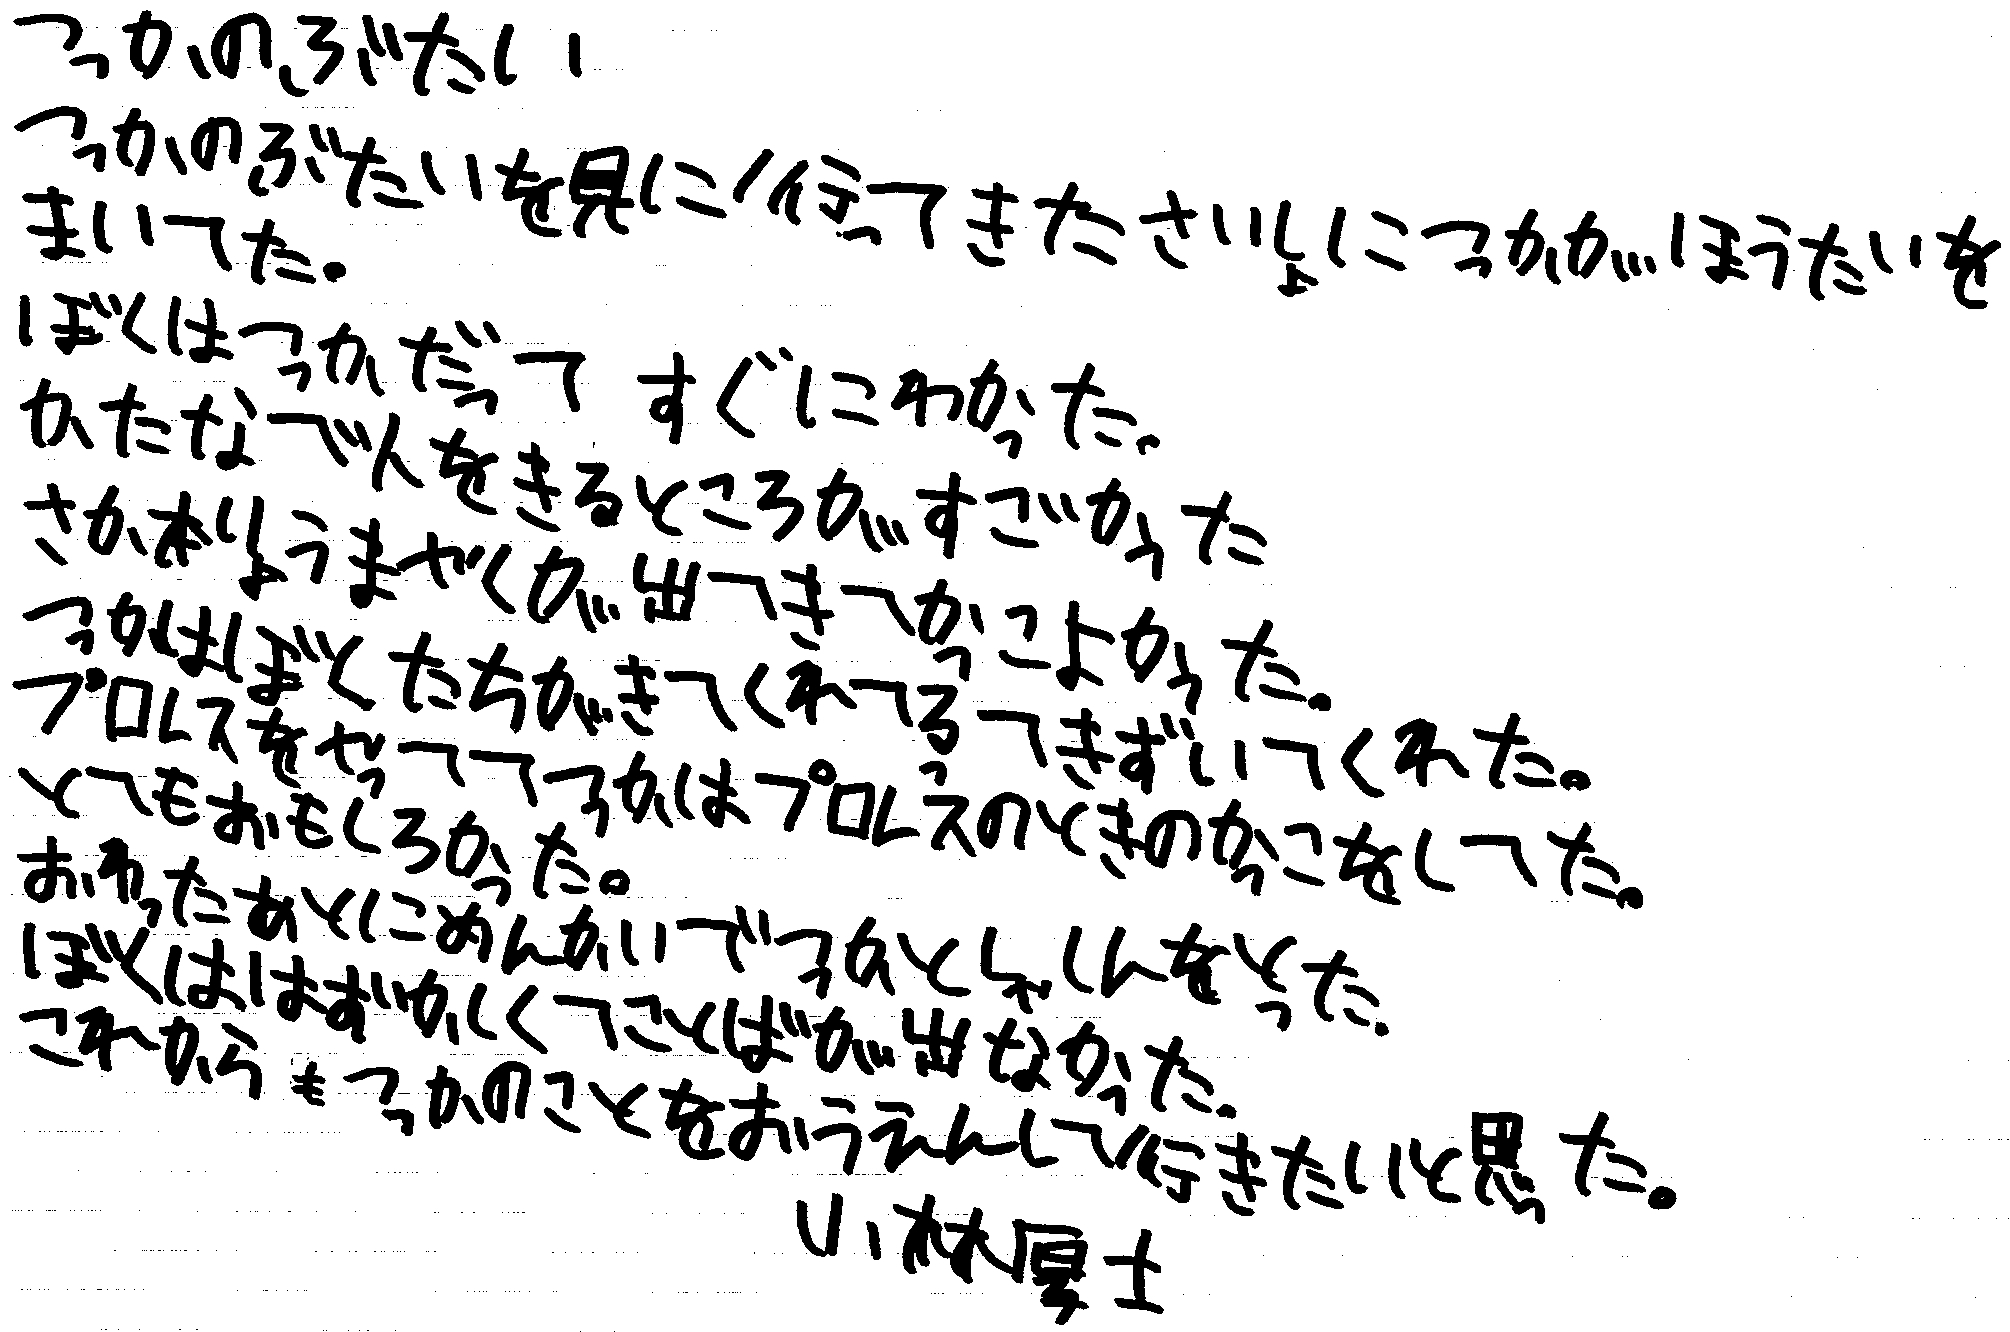 つっかのぶたい
つっかのぶたいを見に行ってきたさいしょにつっかがほうたいを
まいてた。
ぼくはつっかだって すぐにわかった。
かたなでんをきるところがすごかった
さか本りょうまやくが出てきてかっこよかった。
つっかはぼくたちがきてくれてるってきずいてくれた。
プロレスをやっててつっかはプロレスのときのかっこをしてた。
とてもおもしろかった。
おわったあとにめんかいでつっかとしゃしんをとった。
ぼくははずかしくてことばが出なかった。
これからもつっかのことをおうえんして行きたいと思った。
小林厚士